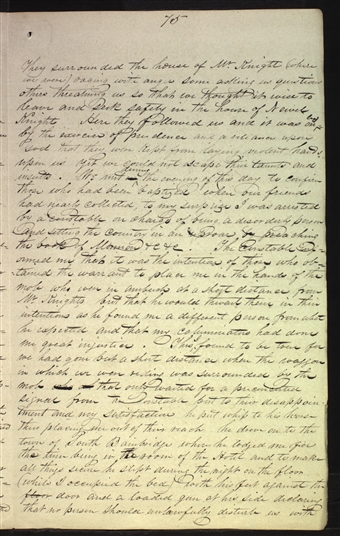 75
They surrounded the house of Mr Knight (where
we were) raging with anger some asking us questions
others threatning us so that we thought it wise to
leave and seek safety in the house of Newel
Knight Here they followed us and it was only
by the exercise of prudence and a reliance upon
God that they were kept from laying violent hands
upon us yet we could not escape their taunts and
insults. We met during the evening of this day to confirm
those who had been baptized when our friends
had nearly collected, to my surprize I was arrested
by a constable on charge of being a disorderly person
and setting the country in an uproar, by preaching
the book of Mormon &c &c. The Constable
me that it was the intention of those who ob-
tained the warrant to place me in the hands of the
mob who were in ambush at a short distance from
Mr Knights but that he would thwart them in their
intentions as he found me a different person from what
he expected and that my calumniators had done
me great injustice. This I found to be true for
we had gone but a short distance when the waggon
in which we were riding was surrounded by the
mob that only waited for a preconcerted
signal from the Constable but to their disappoin-
tment and my satisfaction he put whip to his horse
thus placing me out of their reach he drove on to the
town of South Bainbridge where he lodged me for
the time being in the room of the Hotel and to make
all things secure he slept during the night on the floor
(while I occupied the bed) with his feet against the
door and a loaded gun at his side declaring
that no person should unlawfully disturb us with